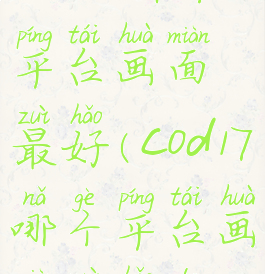 píng tái huà miàn
平台画面
zuì hǎo
最好(cod17
nǎ gè píng tái huà
哪个平台画